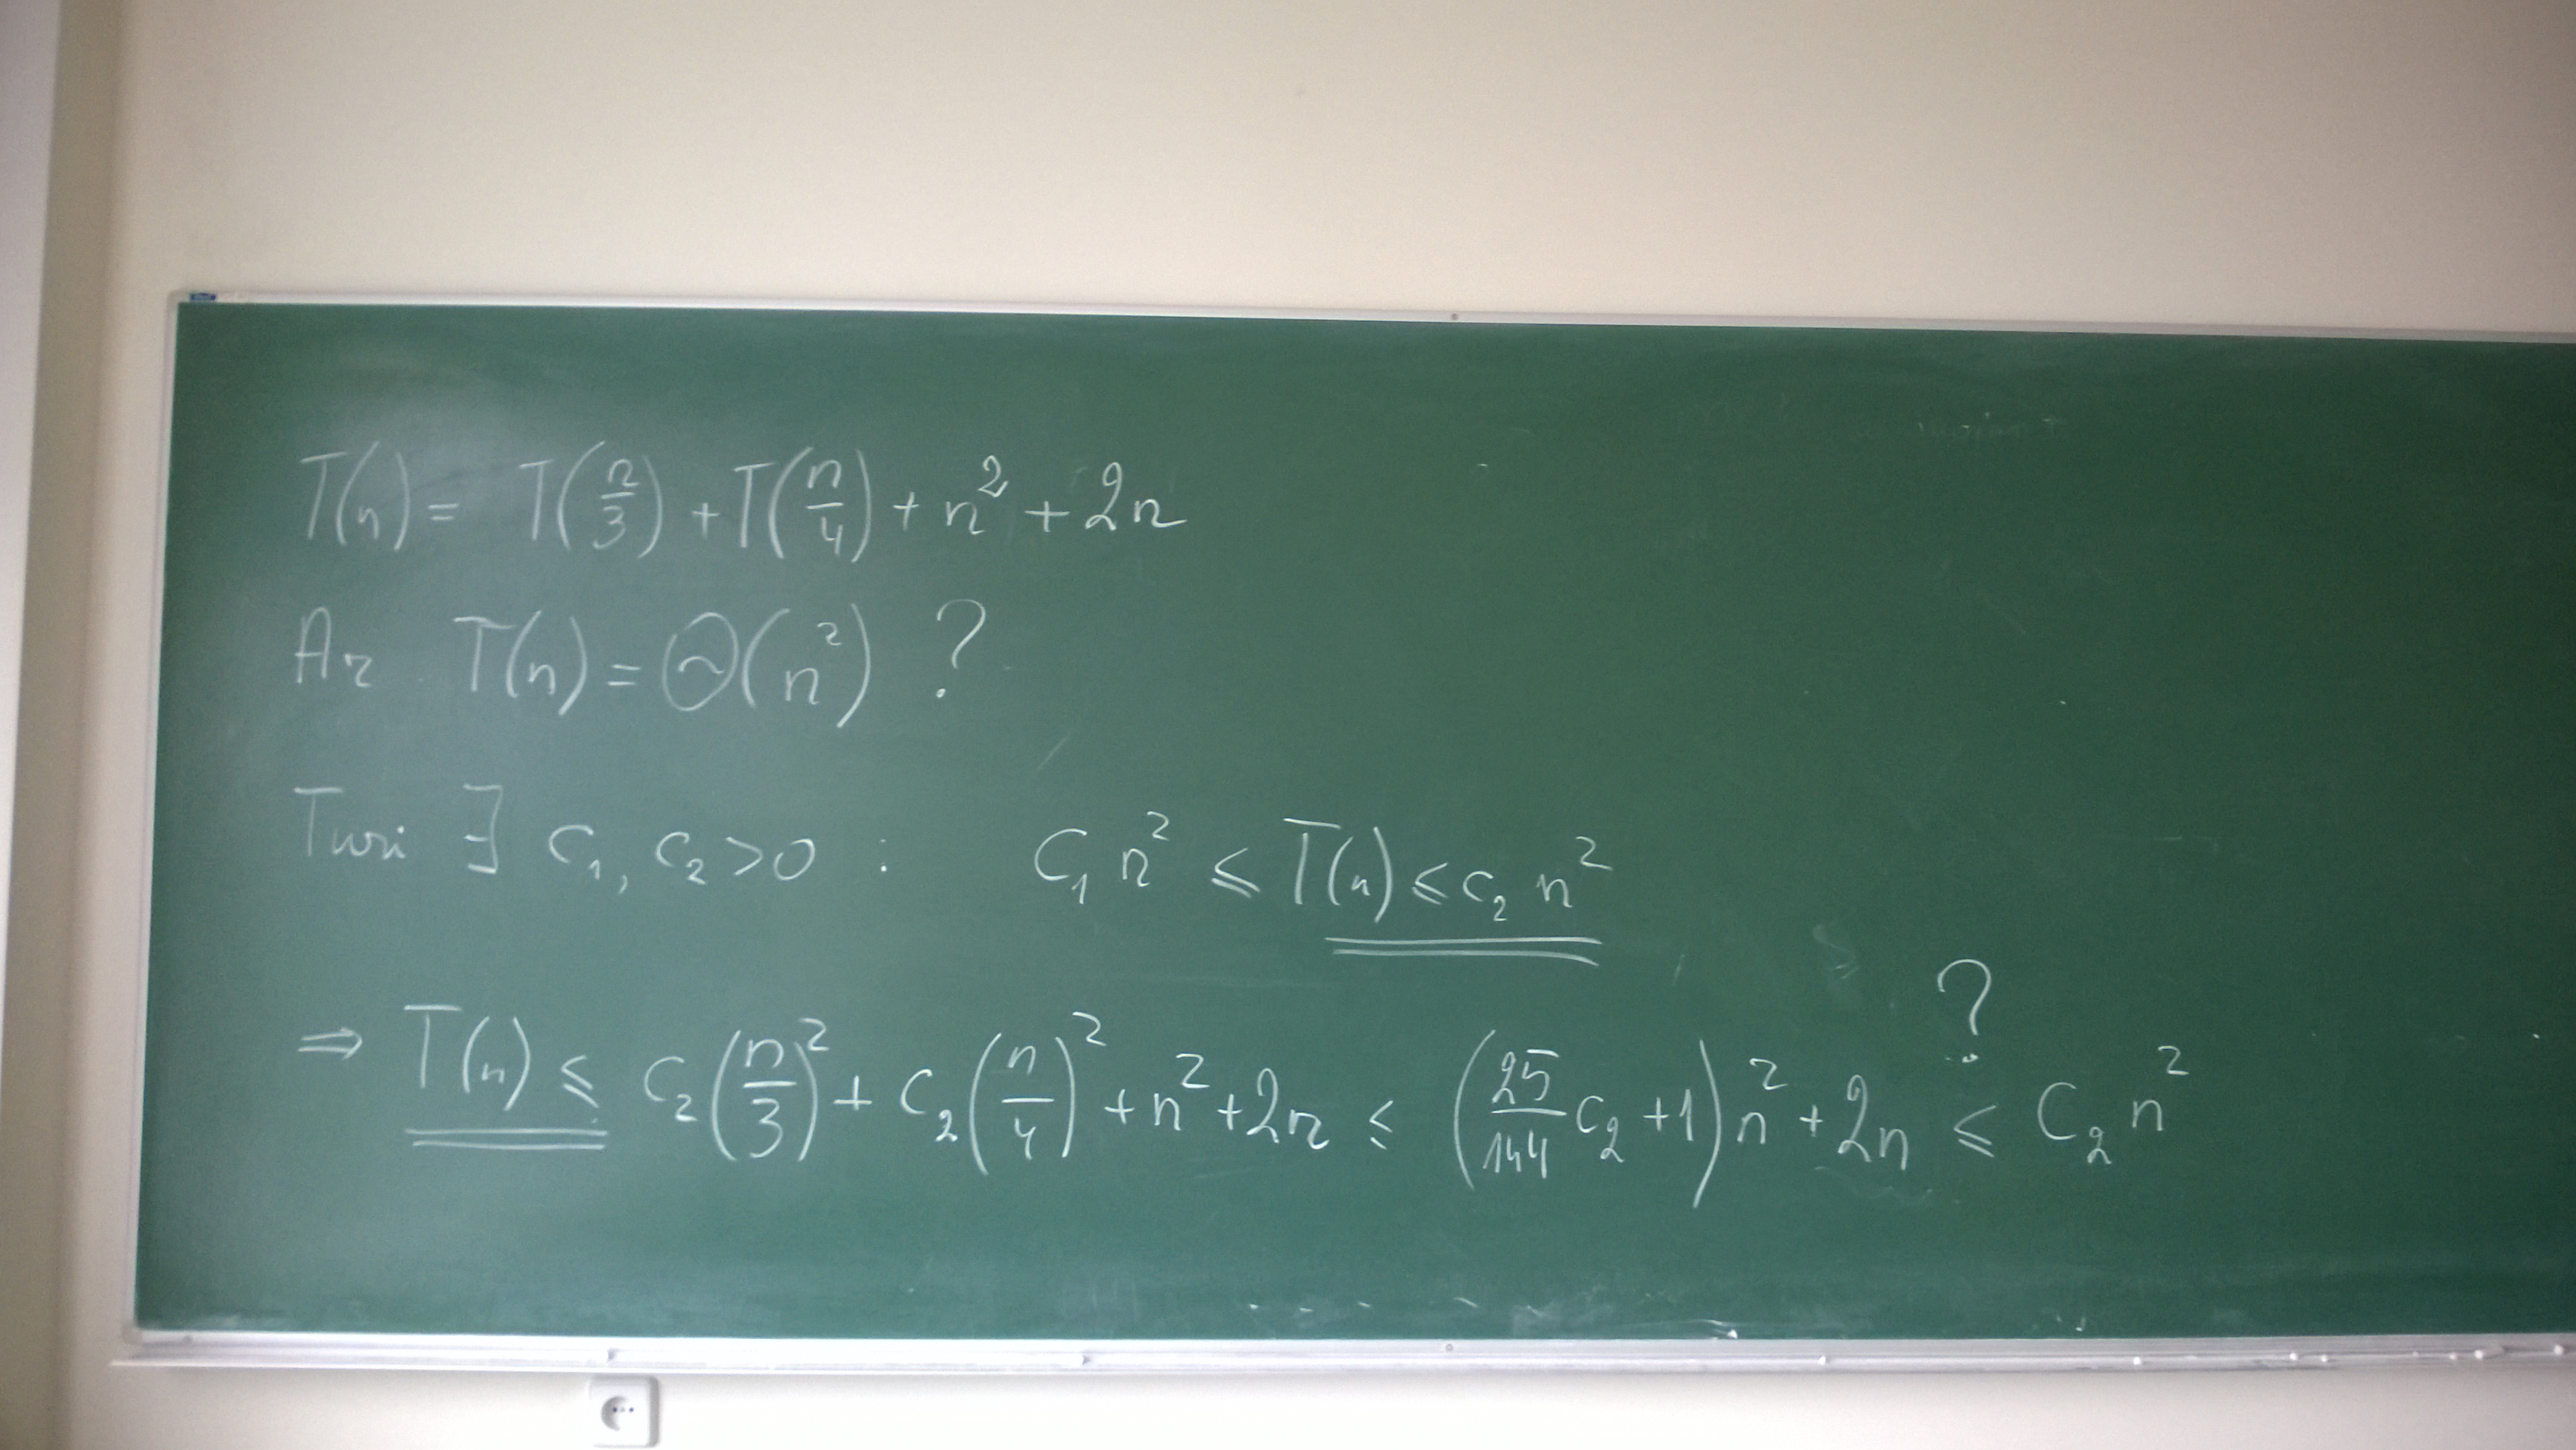 T(n) = T(n/3) + T(n/4) + n² + 2n
Ar T(n) = Θ(n²) ?
Turi ∃ c₁, c₂ > 0 : c₁ n² ≤ T(n) ≤ c₂ n²
⇒ T(n) ≤ c₂(n/3)² + c₂(n/4)² + n² + 2n ≤ (25/144 c₂ + 1) n² + 2n ≤? c₂ n²